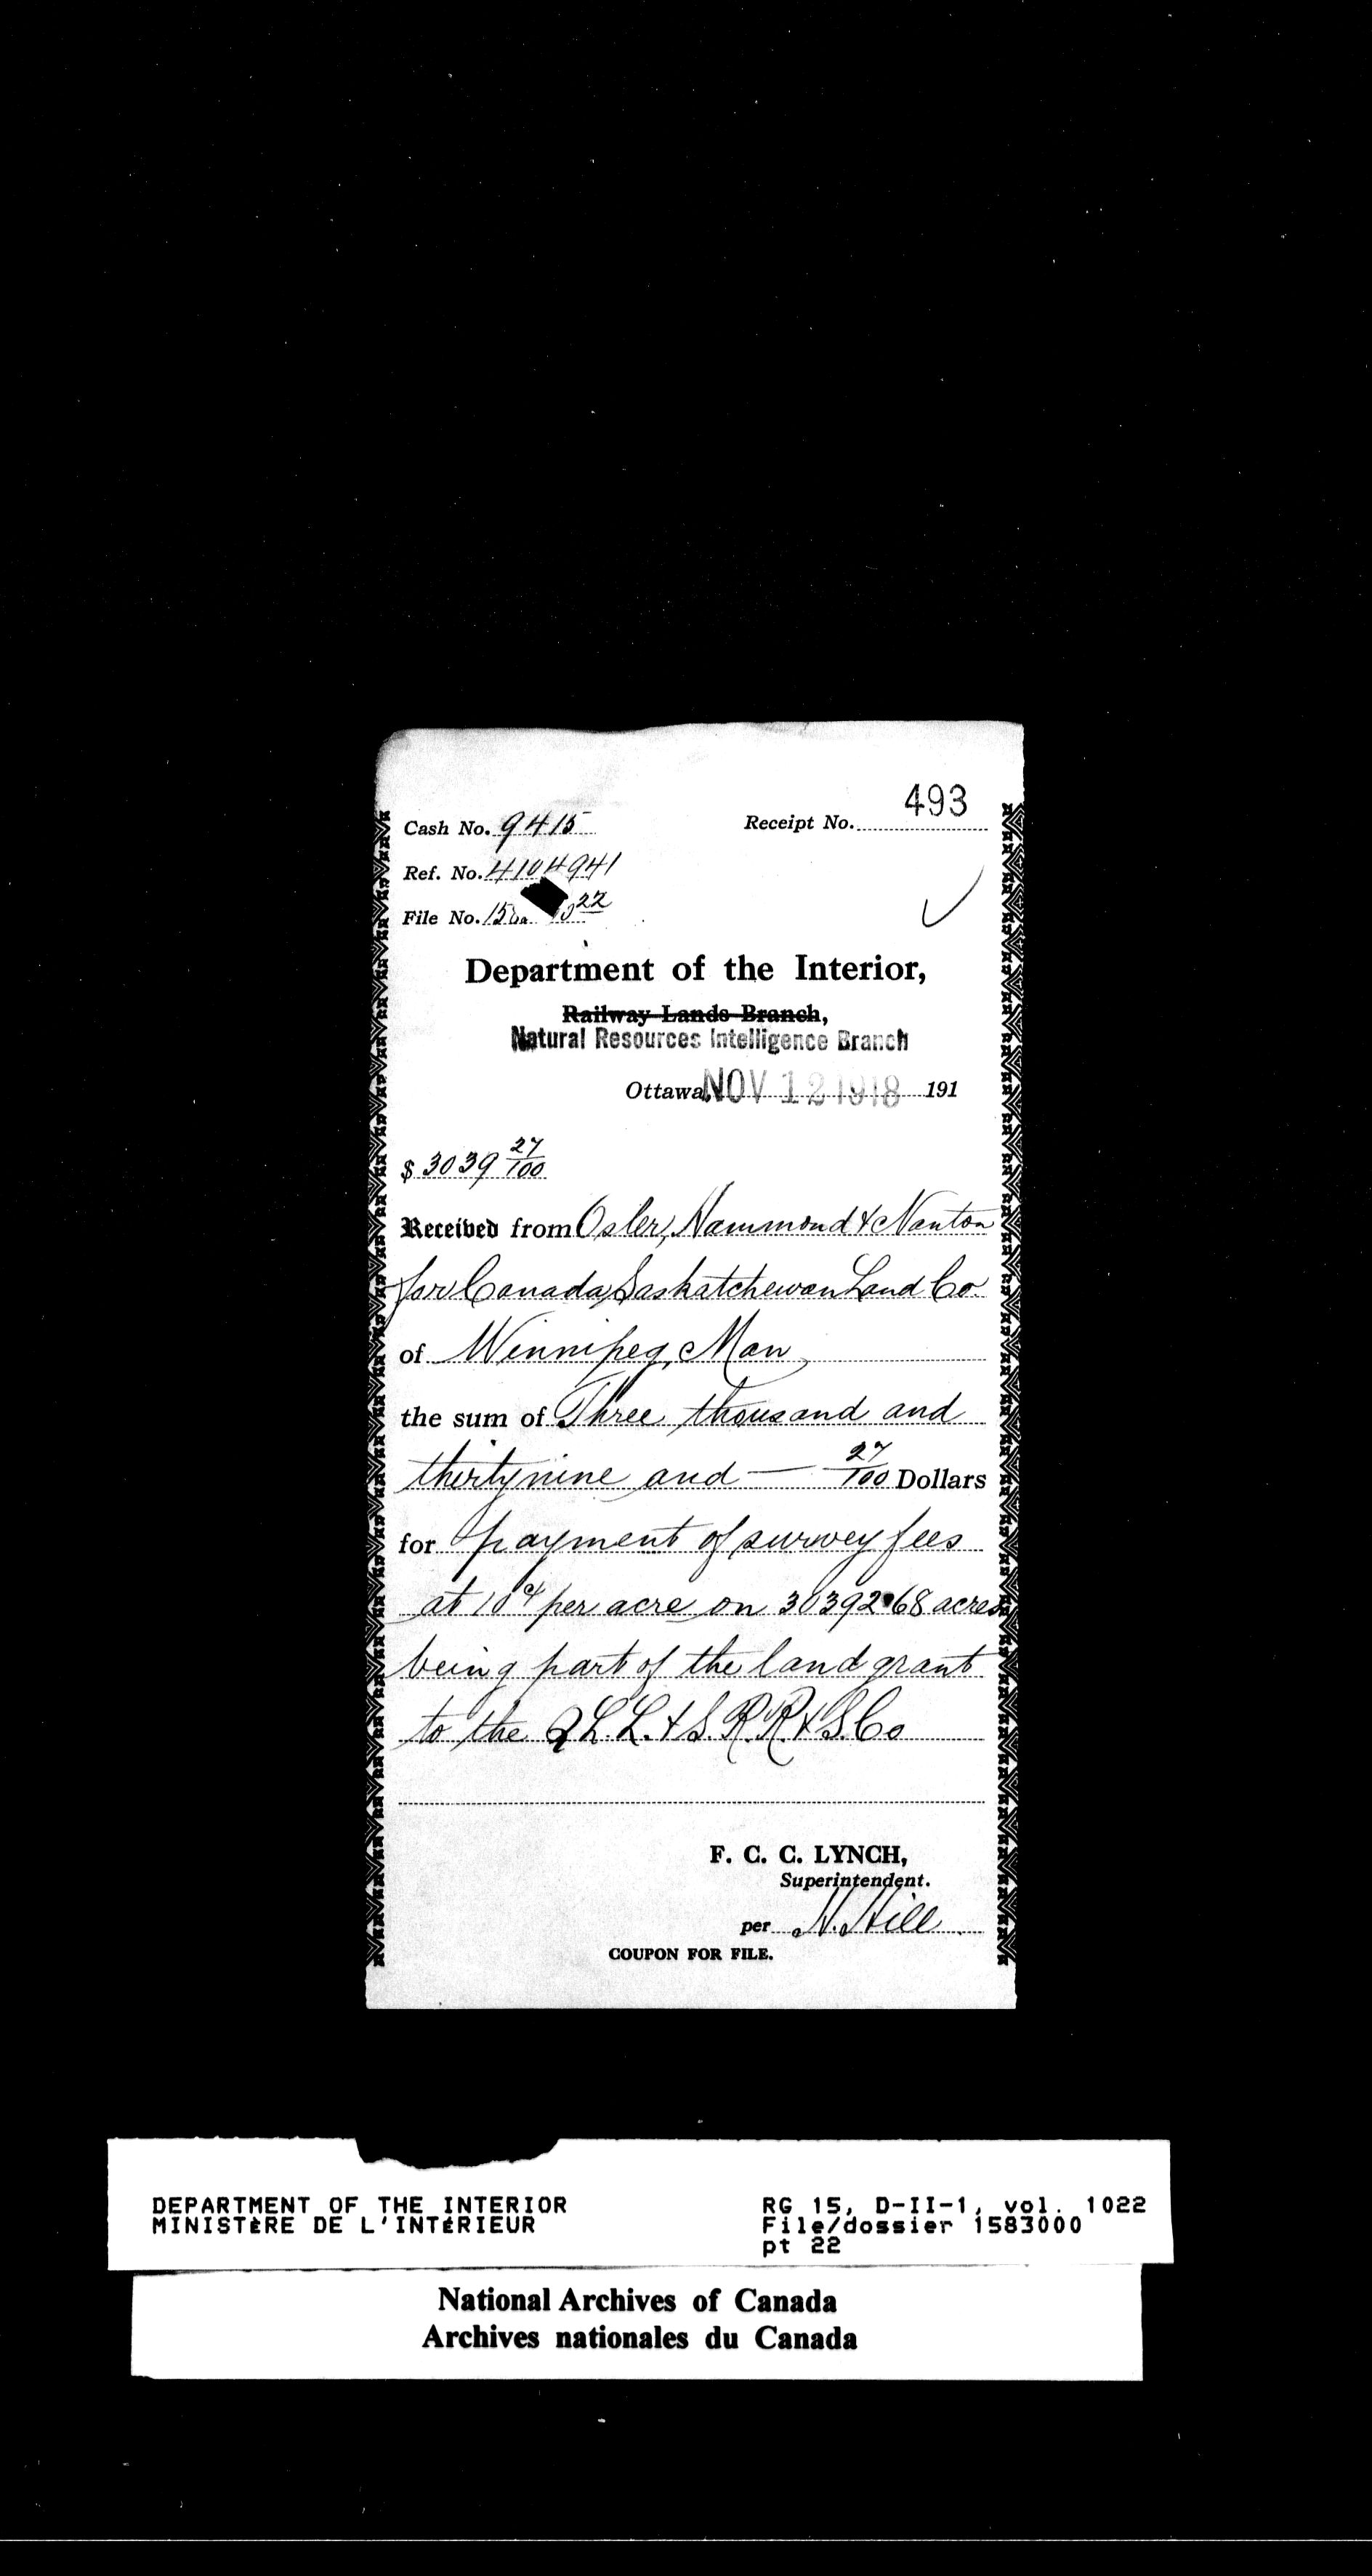 493
Cash No. 9415 Receipt No.
Ref. No. 4104941
File No. 22
Department of the Interior,
Railway Lands Branch,
Natural Resources Intelligence Branch
Ottawa, NOV 12 1918 191
$ 3039 27/100
Received from Osler, Hammond & Nanton
for Canada Saskatchewan Land Co.
of Winnipeg, Man
the sum of Three thousand and
thirtynine and — 27/100 Dollars
for payment of survey fees
at 10¢ per acre on 30392.68 acres
being part of the land grant
to the Q L. L. & S. R. R. & S. Co
F. C. C. LYNCH,
Superintendent.
per H. Hill
COUPON FOR FILE.
DEPARTMENT OF THE INTERIOR RG 15, D-II-1, vol. 1022
MINISTÈRE DE L'INTÉRIEUR File/dossier 1583000
pt 22
National Archives of Canada
Archives nationales du Canada